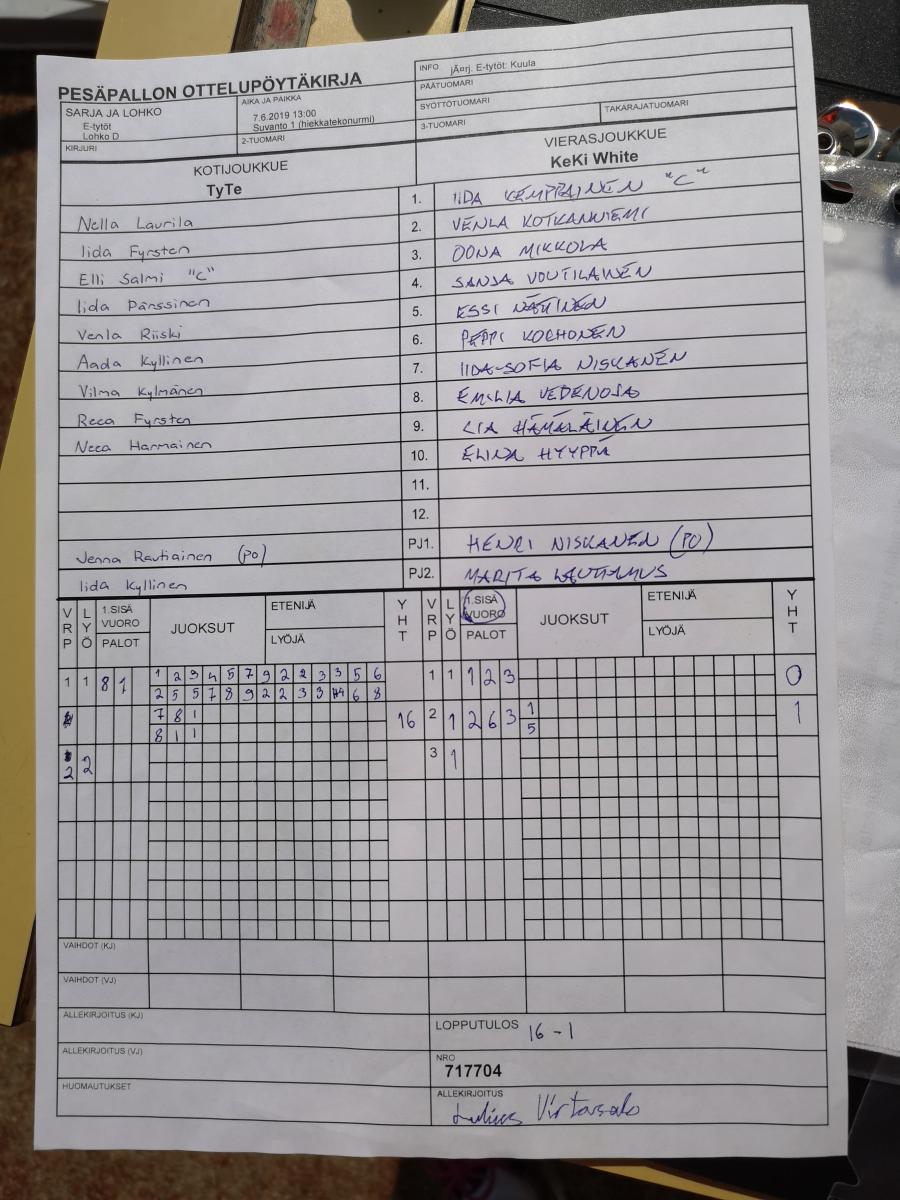 PESÄPALLON OTTELUPÖYTÄKIRJA
INFO jĤrj. E-tytöt: Kuula
PÄÄTUOMARI
SARJA JA LOHKO
E-tytöt
Lohko D
AIKA JA PAIKKA
7.6.2019 13:00
Suvanto 1 (hiekkatekonurmi)
SYÖTTÖTUOMARI
TAKARAJATUOMARI
KIRJURI
2-TUOMARI
3-TUOMARI
KOTIJOUKKUE
TyTe
VIERASJOUKKUE
KeKi White
Nella Laurila 1. IIDA KEMPPAINEN "C"
Iida Fyrsten 2. VENLA KOTKANNIEMI
Elli Salmi "C" 3. OONA MIKKOLA
Iida Pänssinen 4. SANJA VOUTILAINEN
Venla Riiski 5. ESSI NÄTINEN
Aada Kyllinen 6. PEPPI KOCHONEN
Vilma Kylmänen 7. IIDA-SOFIA NISKANEN
Reea Fyrsten 8. EMILIA VEDENOJA
Neea Harmainen 9. LIA HÄMÄLÄINEN
10. ELINA HYYPPÄ
11.
12.
Jenna Rautiainen (PO) PJ1. HENRI NISKANEN (PO)
Iida Kyllinen PJ2. MARITA LAUTIAMUS
VRP LYÖ 1.SISÄ VUORO PALOT JUOKSUT ETENIJÄ LYÖJÄ YHT VRP LYÖ 1.SISÄ VUORO PALOT JUOKSUT ETENIJÄ LYÖJÄ YHT
1 1 8 1 1 2 3 4 5 7 9 2 2 3 3 5 6 1 1 1 2 3 0
2 5 5 7 8 9 2 2 3 3 4 6 8
7 8 1 16 2 1 2 6 3 1 1
8 1 1 5
2 2 3 1
VAIHDOT (KJ)
VAIHDOT (VJ)
ALLEKIRJOITUS (KJ)
LOPPUTULOS 16-1
ALLEKIRJOITUS (VJ)
NRO
717704
HUOMAUTUKSET
ALLEKIRJOITUS
Julius Virtasalo